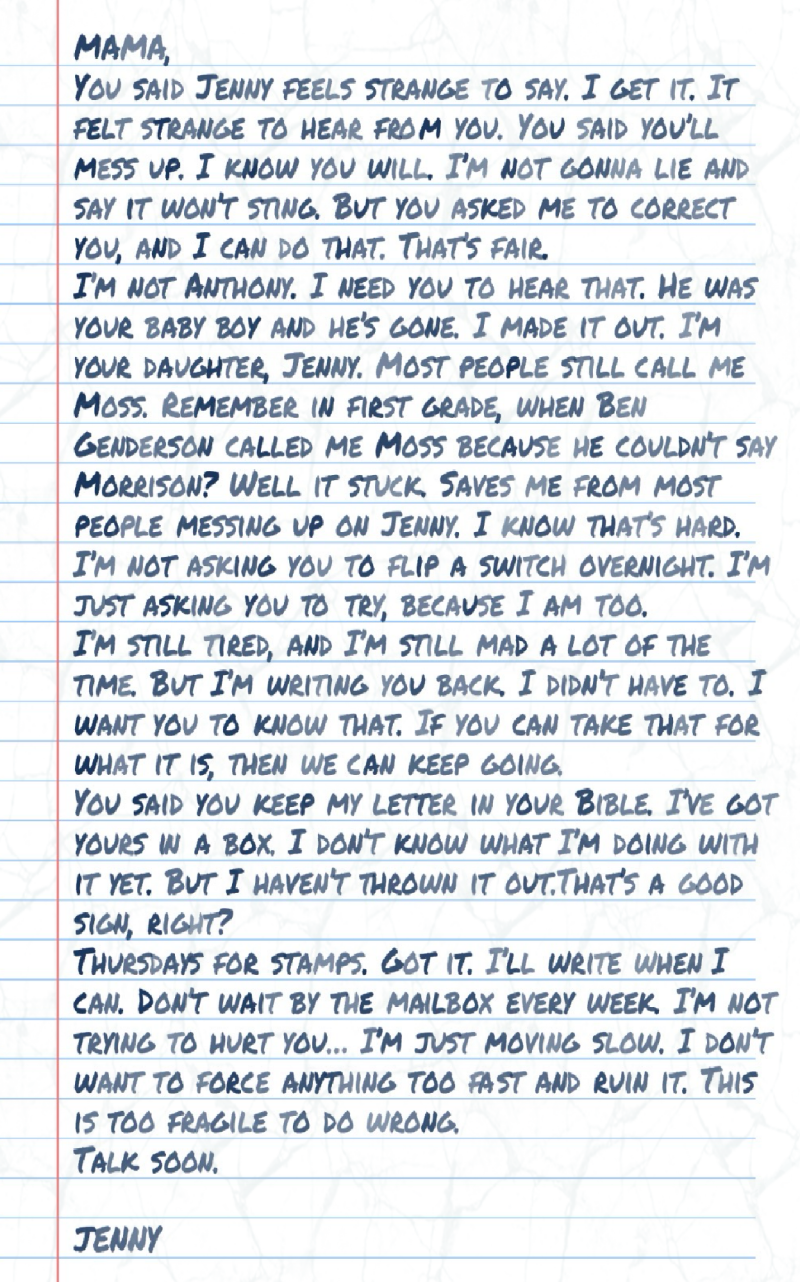 Mama,
You said Jenny feels strange to say. I get it. It
felt strange to hear from you. You said you'll
mess up. I know you will. I'm not gonna lie and
say it won't sting. But you asked me to correct
you, and I can do that. That's fair.
I'm not Anthony. I need you to hear that. He was
your baby boy and he's gone. I made it out. I'm
your daughter, Jenny. Most people still call me
Moss. Remember in first grade, when Ben
Genderson called me Moss because he couldn't say
Morrison? Well it stuck. Saves me from most
people messing up on Jenny. I know that's hard.
I'm not asking you to flip a switch overnight. I'm
just asking you to try, because I am too.
I'm still tired, and I'm still mad a lot of the
time. But I'm writing you back. I didn't have to. I
want you to know that. If you can take that for
what it is, then we can keep going.
You said you keep my letter in your Bible. I've got
yours in a box. I don't know what I'm doing with
it yet. But I haven't thrown it out.That's a good
sign, right?
Thursdays for stamps. Got it. I'll write when I
can. Don't wait by the mailbox every week. I'm not
trying to hurt you... I'm just moving slow. I don't
want to force anything too fast and ruin it. This
is too fragile to do wrong.
Talk soon.
Jenny